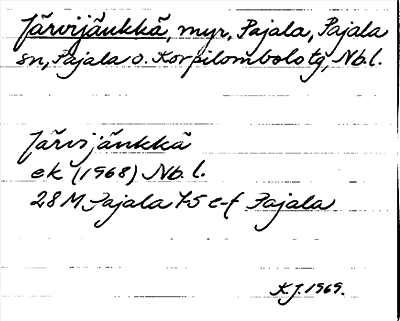 Järvijänkkä, myr, Pajala, Pajala
sn, Pajala o. Korpilombolo tg, Nb.l.
Järvijänkkä
ek (1968) Nb.l.
28M Pajala 7-5 e-f Pajala
K.J. 1969.